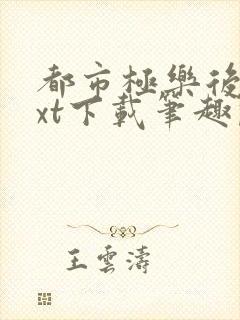 都市極樂後
xt下載筆趣
王雲濤